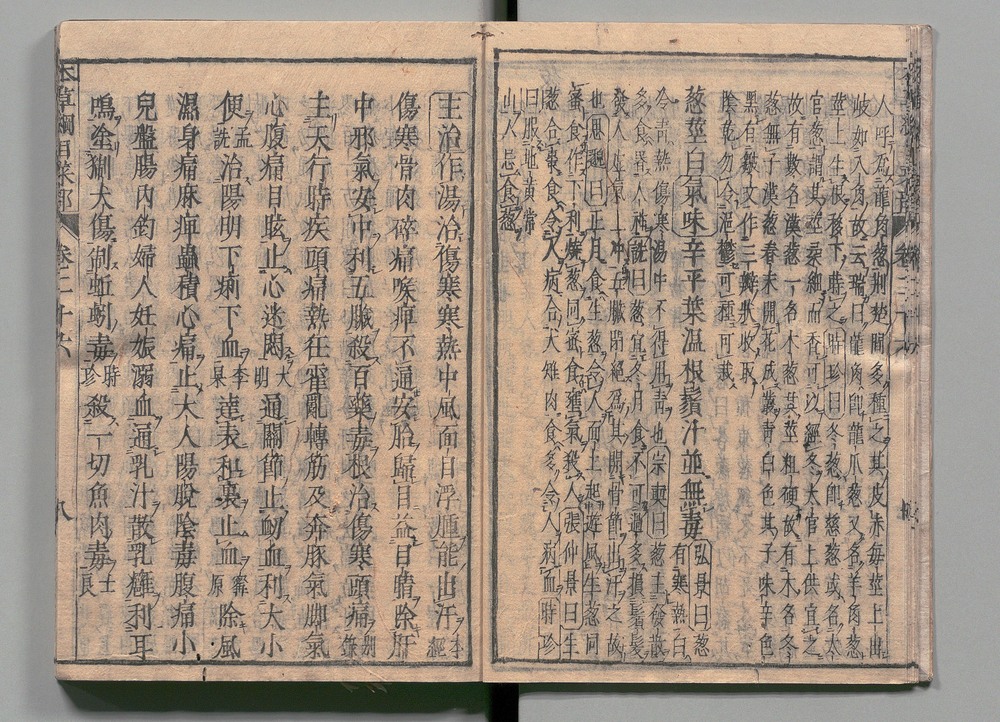 人呼為龍角葱荊楚間多種之其皮赤每莖上出
岐如入角故云瑞曰龍角即龍爪葱又名羊角葱
莖上生根移下蒔之時珍曰冬葱即慈葱或名太
官葱謂其莖柔細而香可以經冬太官上供宜之
故有數名漢葱一名木葱其莖粗硬故有木名冬
葱無子漢葱春末開花成叢青白色其子味辛色
黑有皺文作三瓣狀收取
陰乾勿令浥鬱可種可栽
葱莖白氣味辛平葉温根鬚汁並無毒弘景曰葱有寒熱白
冷青熱傷寒湯中不得用青也宗奭曰葱主發散
多食昏人神詵曰葱宜冬月食不可過多損鬚髮
發人虛氣上冲五臟閉絕為其開骨節出汗之故
也思邈曰正月食生葱令人面上起遊風生葱同
蜜食作下利燒葱同蜜食壅氣殺人張仲景曰生
葱合棗食令人病合犬雉肉食多令人病血時珍
曰服地黃常
山人忌食葱
主治作湯治傷寒寒熱中風面目浮腫能出汗本經
傷寒骨肉碎痛喉痺不通安胎歸目益目睛除肝
中邪氣安中利五臟殺百藥毒根治傷寒頭痛別錄
主天行時疾頭痛熱狂霍亂轉筋及奔豚氣脚氣
心腹痛目眩止心迷悶大明通關節止衂血利大小
便孟詵治陽明下痢下血李杲達表和裏止血寧原除風
濕身痛麻痺蟲積心痛止大人陽脫陰毒腹痛小
兒盤腸內釣婦人妊娠溺血通乳汁散乳癰利耳
鳴塗猘犬傷制蚯蚓毒時珍殺一切魚肉毒士良
本草綱目菜部 卷二十六 八